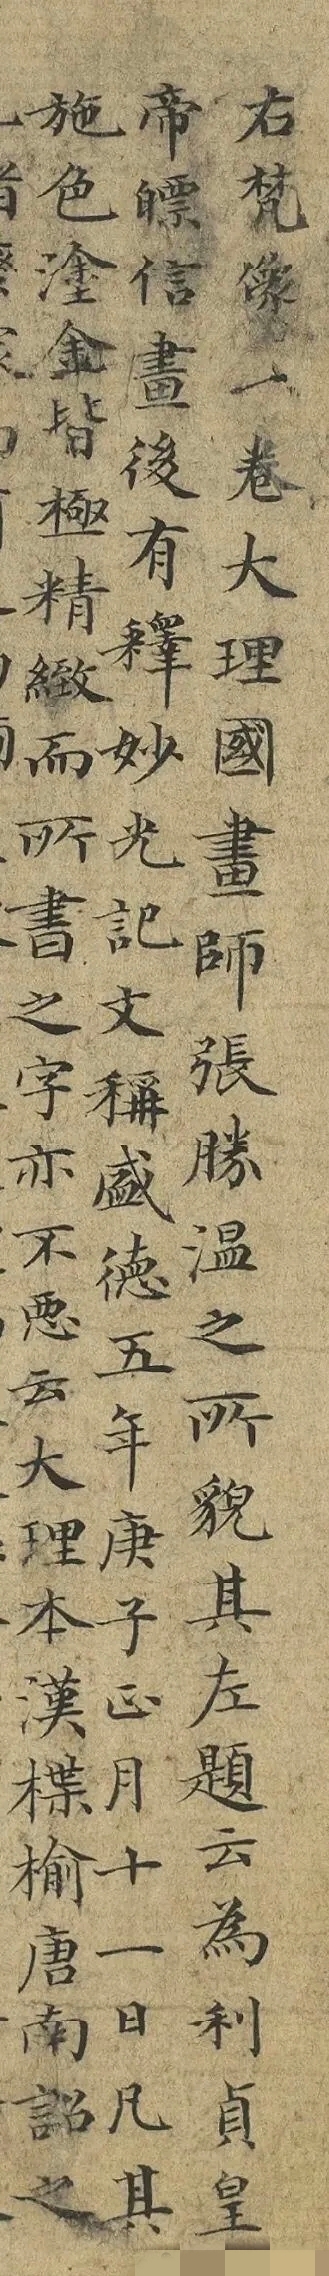 右梵像一卷大理國畫師張勝温之所貌其左題云為利貞皇
帝瞟信畫後有釋妙光記文稱盛德五年庚子正月十一日凡其
施色塗金皆極精緻而所書之字亦不惡云大理本漢楪榆唐南詔之